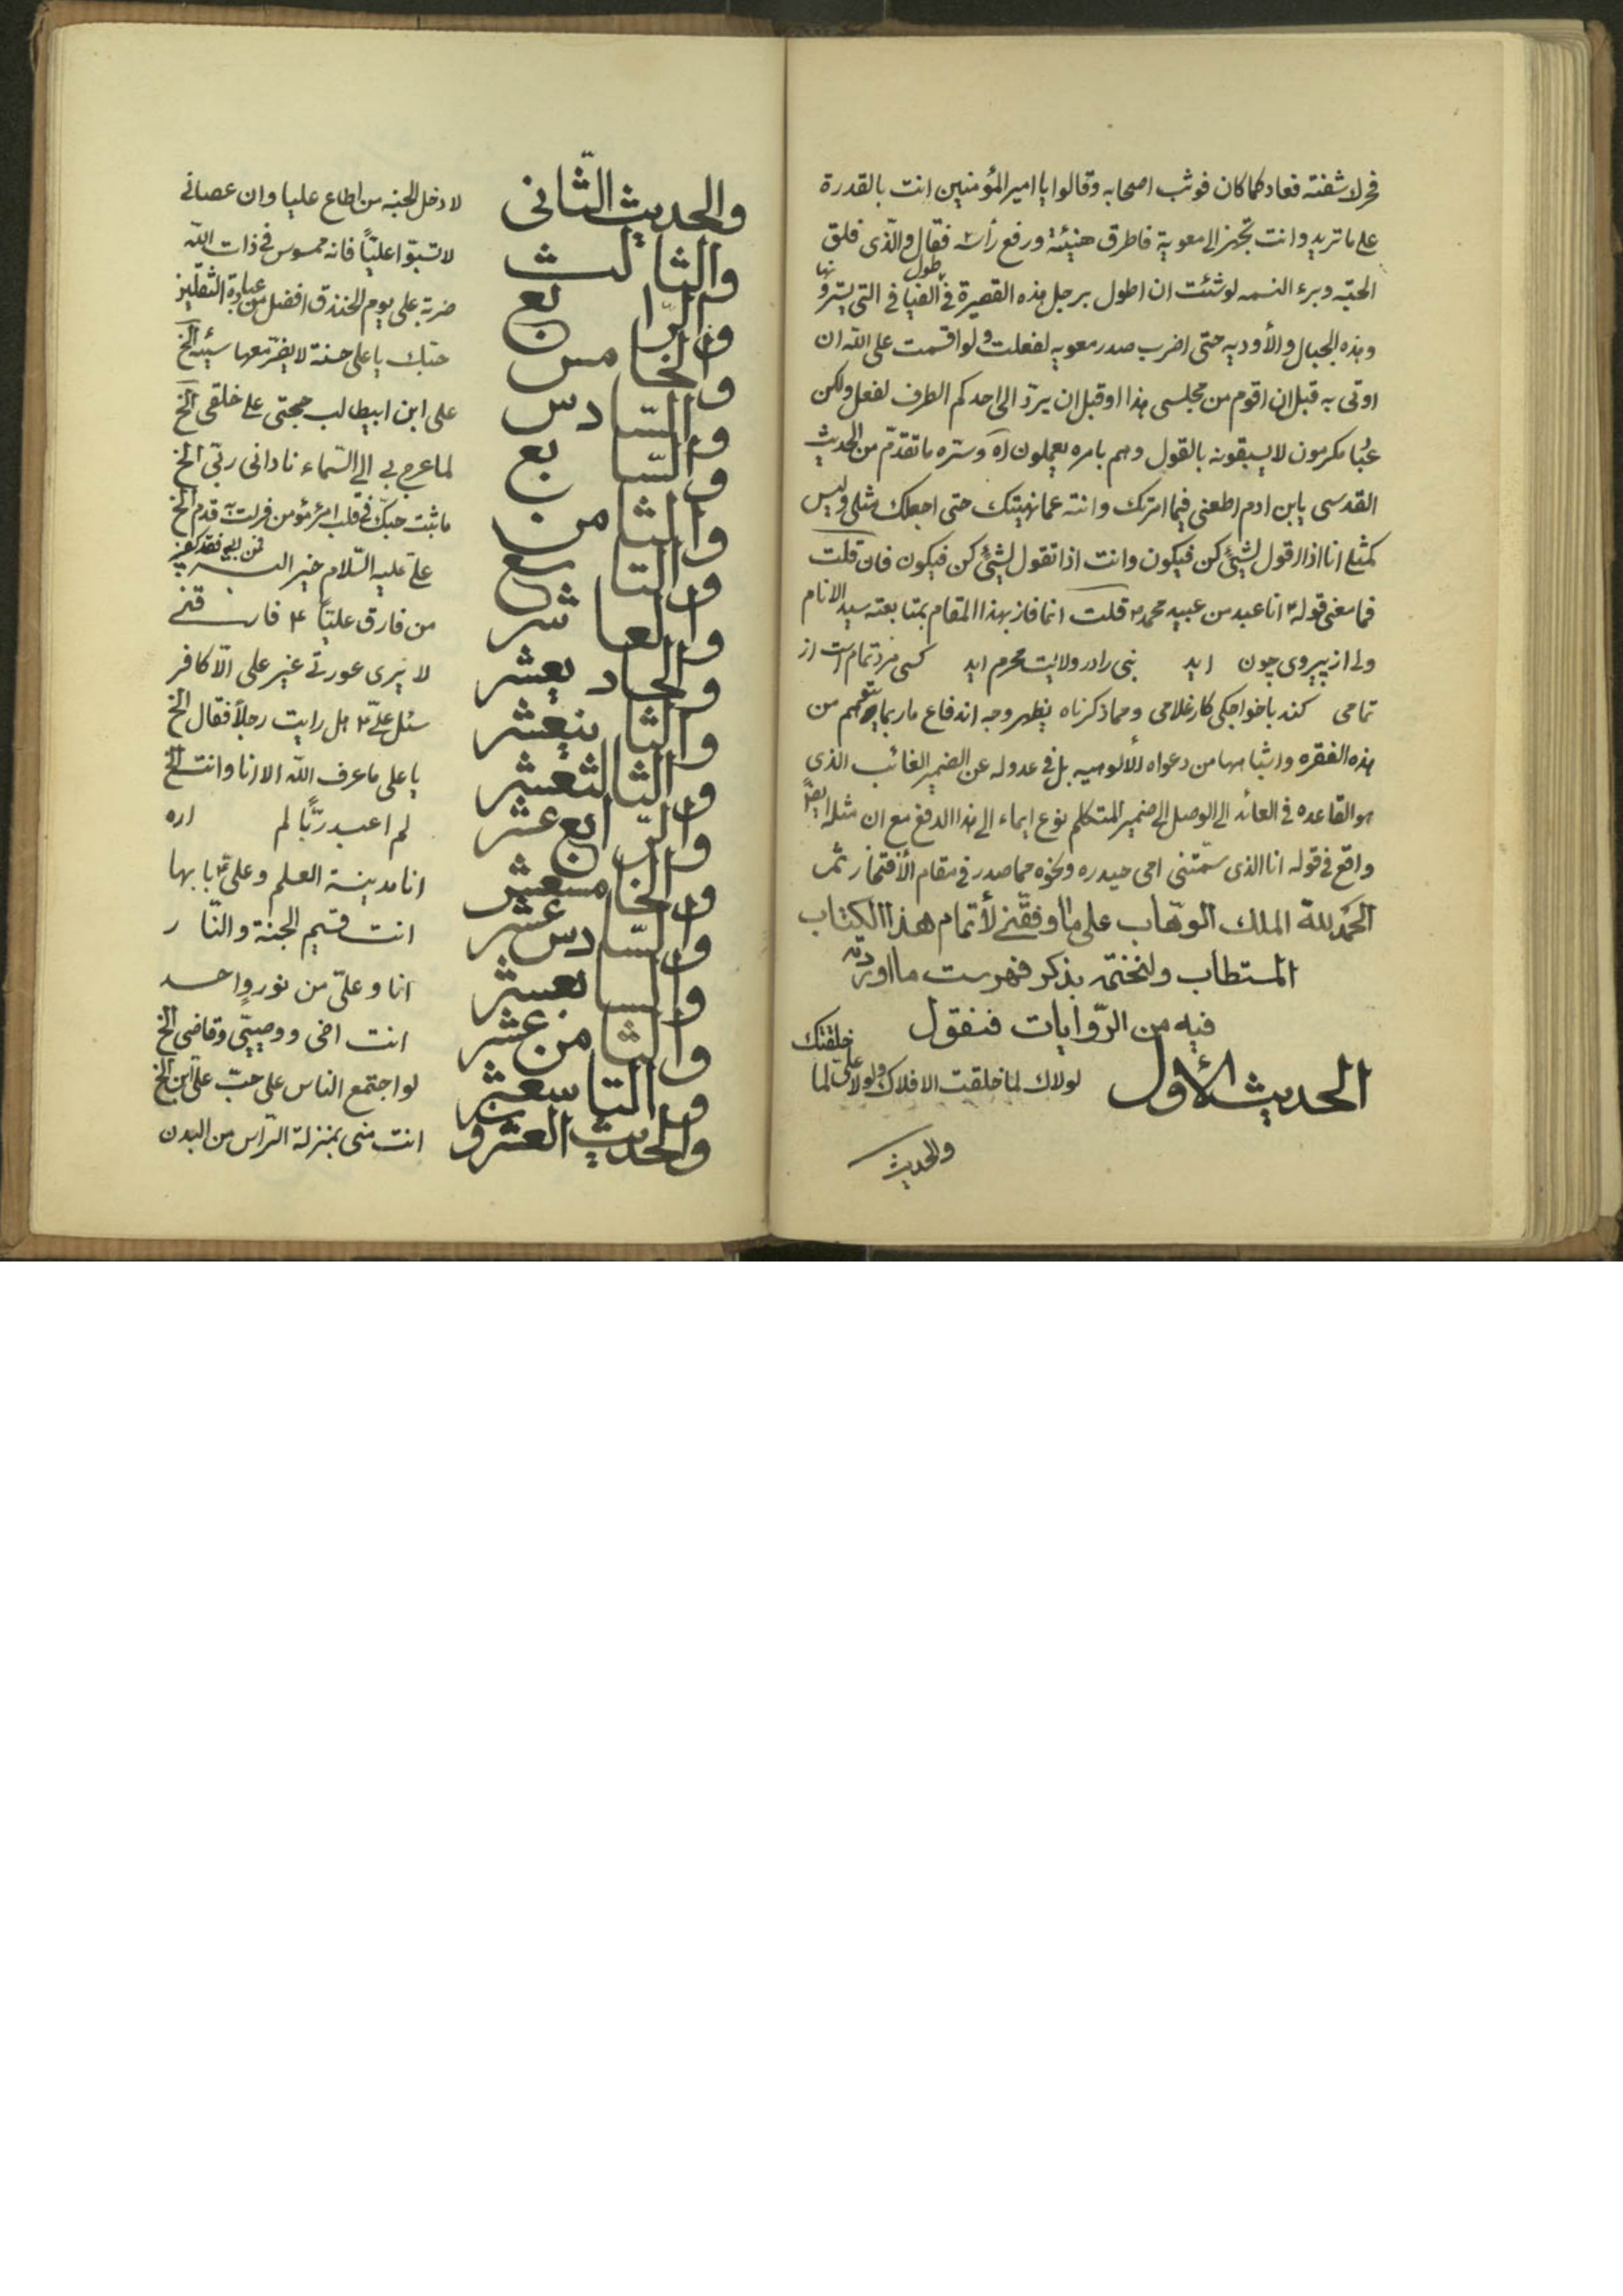 فحرك شفته فعاد كما كان فوثب اصحابه وقالوا يا امير المؤمنين انت بالقدرة
على ما تريد وانت تجهز الى معوية فاطرق هنيئة ورفع رأسه فقال والّذى فلق
الحبّه وبرء النسمه لو شئت ان اطول برجلى هذه القصيرة فى طول الفيافى التى يسترونها
وهذه الجبال والأوديه حتى اضرب صدر معويه لفعلت ولو اقسمت على الله ان
اوتى به قبل ان اقوم من مجلسى هذا او قبل ان يرتدّ الى احدكم الطرف لفعل ولكن
عباد مكرمون لا يسبقونه بالقول وهم بامره يعملون اه وستره ما تقدّم من الحديث
القدسى يابن ادم اطعنى فيما امرتك وانته عما نهيتك حتى اجعلك مثلى وليس
كمثلى انا اذا اقول لشيئ كن فيكون وانت اذا تقول لشيئ كن فيكون فان قلت
فما معنى قوله ع انا عبد من عبيد محمد ص قلت انما فاز بهذا المقام بمتابعته سيد الانام
ولى از پيروى چون ايد نبى را در ولايت محرم ايد كسى مرد تمام است از
تمامى كند با خواجگى كار غلامى ومما ذكرناه يظهر وجه اندفاع ما ربما يتوهم من
هذه الفقره واشباهها من دعواه الألوهيه بل فى عدوله عن الضمير الغائب الذى
هو القاعده فى العائد الى الوصل الى ضمير المتكلم نوع ايماء الى هذا الدفع مع ان مثله ايضًا
واقع فى قوله انا الذى سمّتنى امى حيدره ونحوه مما صدر فى مقام الأفتخار ثم
الحمد لله الملك الوهّاب على ما وفقنى لأتمام هذا الكتاب
المستطاب ولنختم بذكر فهرست ما اوردته
فيه من الرّوايات فنقول
الحديث الأول لولاك لما خلقت الافلاك ولولا علىّ لما خلقتك
والحديث
والحديث الثّانى لادخل الجنه من اطاع عليا وان عصانى
والثالث لا تسبّوا عليّاً فانه ممسوس فى ذات الله
والرّابع ضربة على يوم الخندق افضل من عبادة الثقلين
والخامس حبّك يا على حسنة لا يضرّ معها سيئه الخ
والسّادس على ابن ابيطالب حجتى على خلقى الخ
والسّابع لما عرج بى الى السّماء نادانى ربّى الخ
والثامن ما ثبت حبّك فى قلب امرئ مؤمن فزلت قدم الخ
والتاسع على عليه السّلام خير البشر فمن ابى فقد كفر
والعاشر من فارق عليّاً ع فارقنى
والحاديعشر لا يرى عورتى غير على الّا كافر
والثانيعشر سئل علىّ ع هل رايت رجلاً فقال الخ
والثالثعشر يا على ما عرف الله الا انا وانت الخ
والرّابع عشر لم اعبد ربًّا لم اره
والخامسعشر انا مدينة العلم وعلى ع بابها
والسّادس عشر انت قسيم الجنة والنّار
والسابعشر انا وعلىّ من نور واحد
والثامن عشر انت اخى ووصيّى وقاضى الخ
والتاسعشر لو اجتمع الناس على حبّ علىّ ابن الخ
والحديث العشرو انت منى بمنزلة الرّاس من البدن